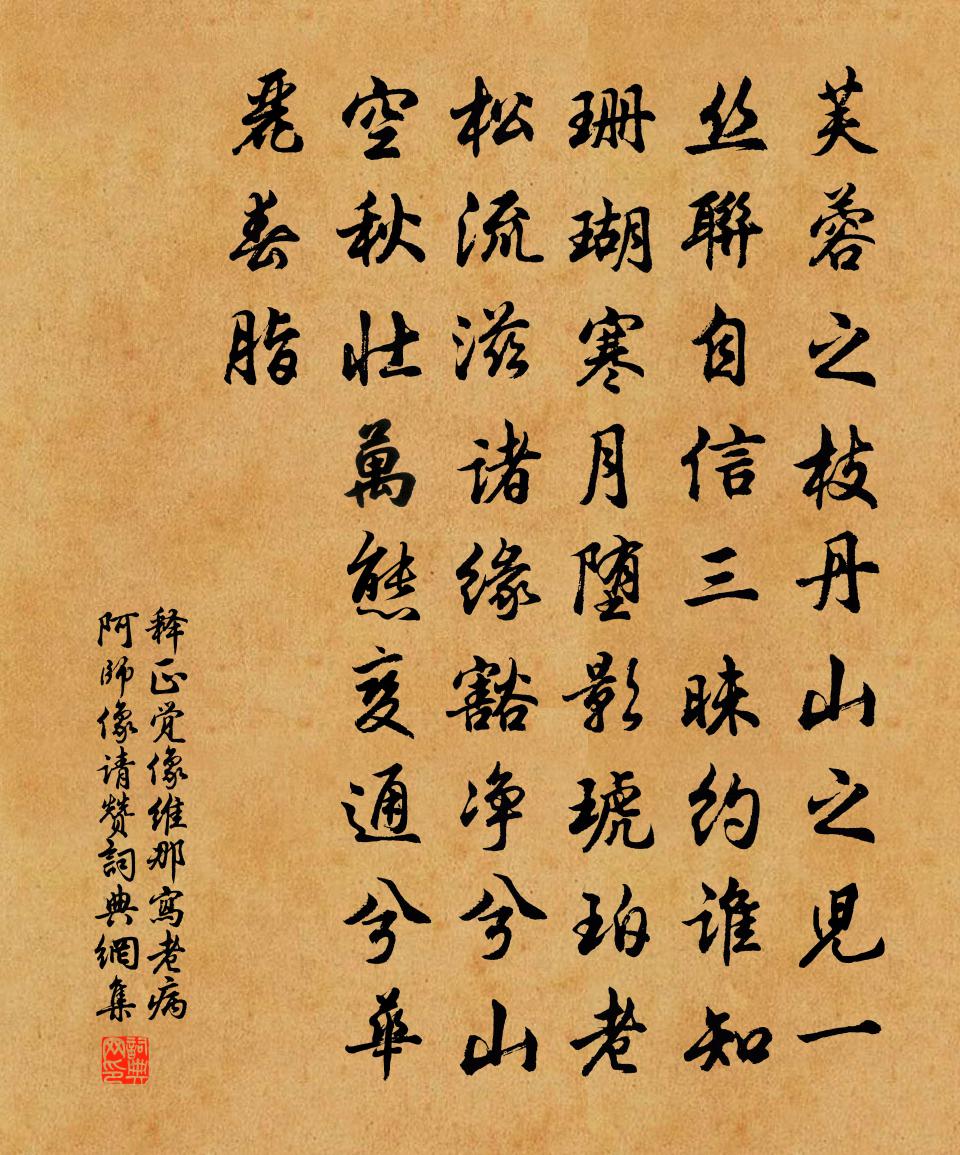 芙蓉之枝丹山之児一
丝聯自信三昧約谁知
珊瑚寒月堕影琥珀老
松流滋诸缘豁净兮山
空秋壮萬態变通兮華
麗春脂
释正覚像维那寫老病
阿師像请赞詞典網集
詞典网印